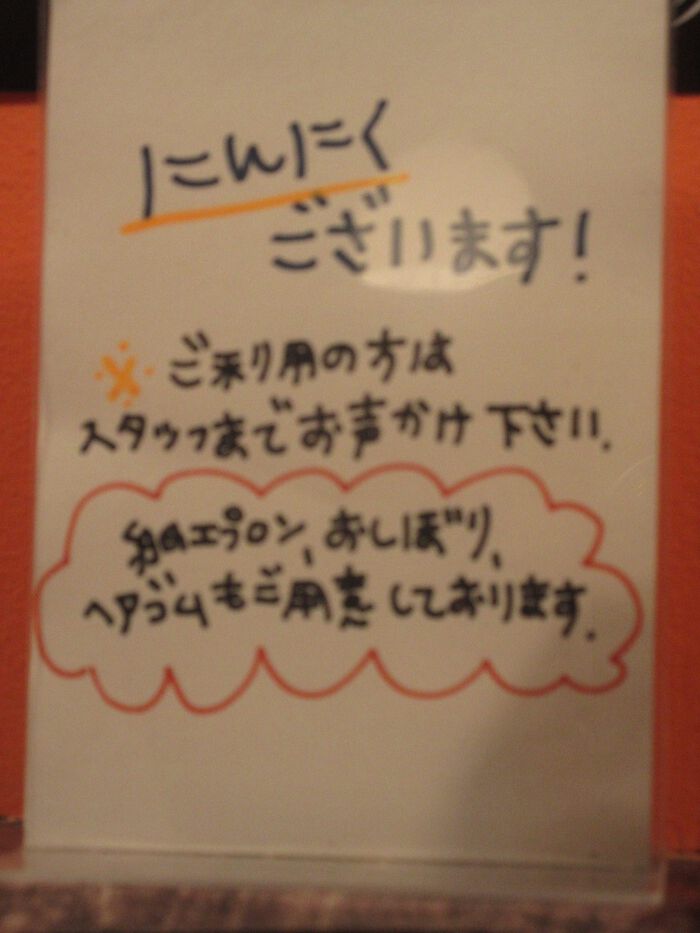 にんにく
ございます!
※ ご利用の方は
スタッフまでお声かけ下さい.
紙エプロン、おしぼり、
ヘアゴムもご用意しております.